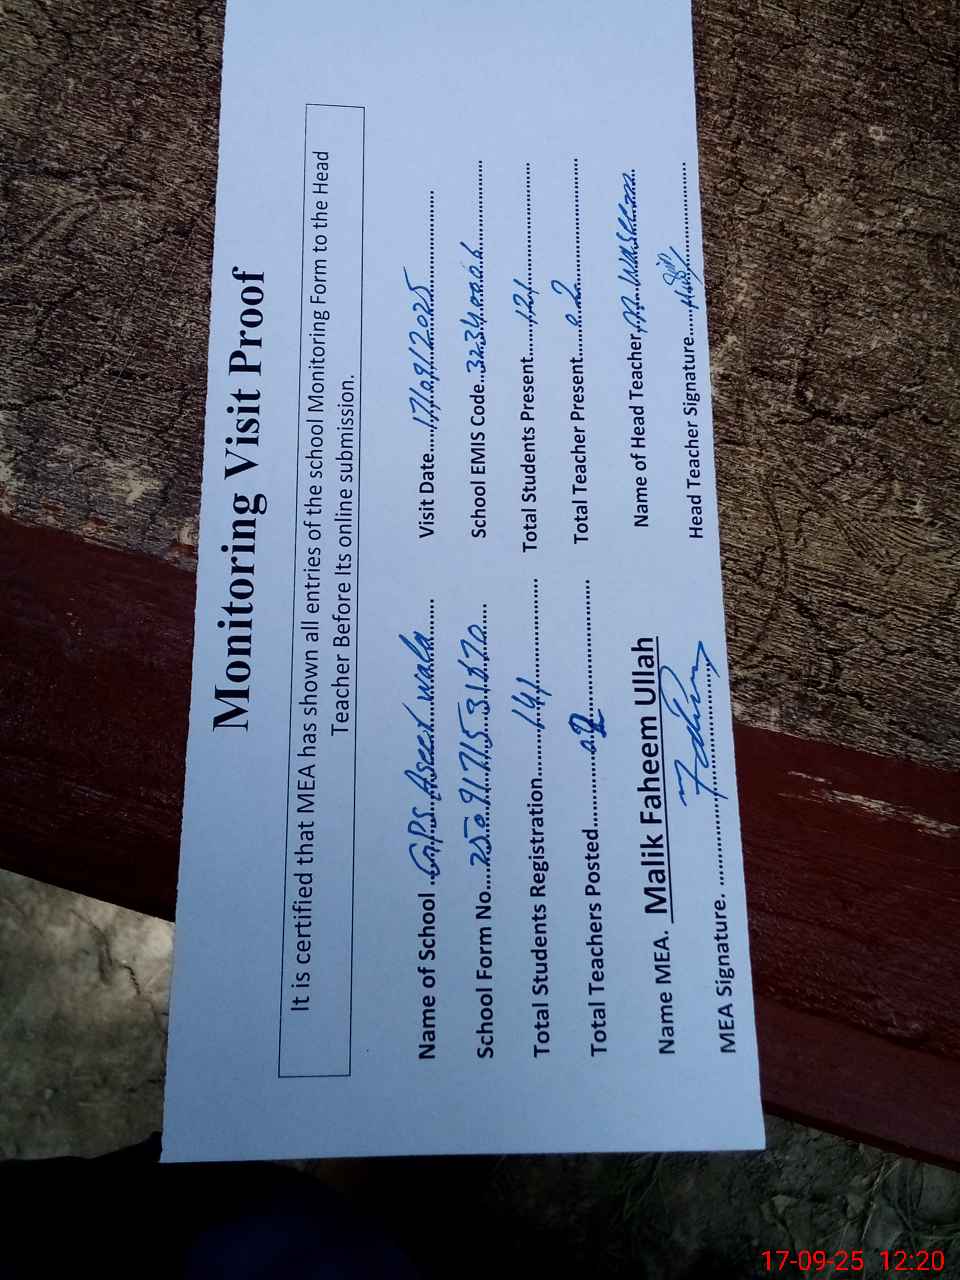 Monitoring Visit Proof
It is certified that MEA has shown all entries of the school Monitoring Form to the Head
Teacher Before Its online submission.
Name of School. GPS Aseer wala Visit Date 17/09/2025
School Form No. 2509171531670 School EMIS Code. 32340006
Total Students Registration 141 Total Students Present 121
Total Teachers Posted 02 Total Teacher Present 02
Name MEA. Malik Faheem Ullah Name of Head Teacher M. Waseem
MEA Signature. Head Teacher Signature
17-09-25 12:20